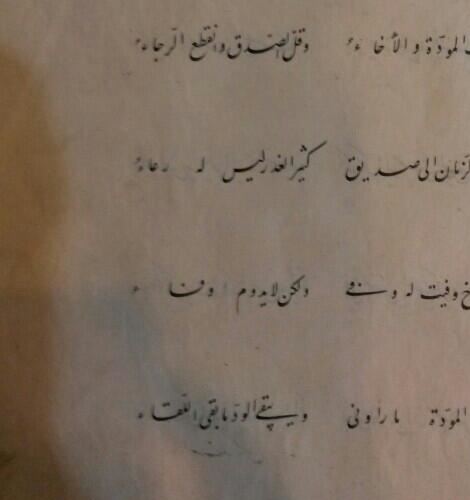 المودّة والأخاءُ وقلّ الصّدق وانقطع الرّجاءُ
الى صديق كثير الغدر ليس له رعاءُ
وفيت له وفيّ ولكن لا يدوم له وفاء
المودّة مارأونى ويبقى الودّ ما بقى اللّقاء